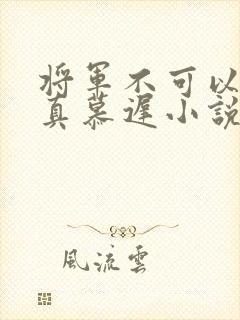 將軍不可以
真慕遲小說
風流雲